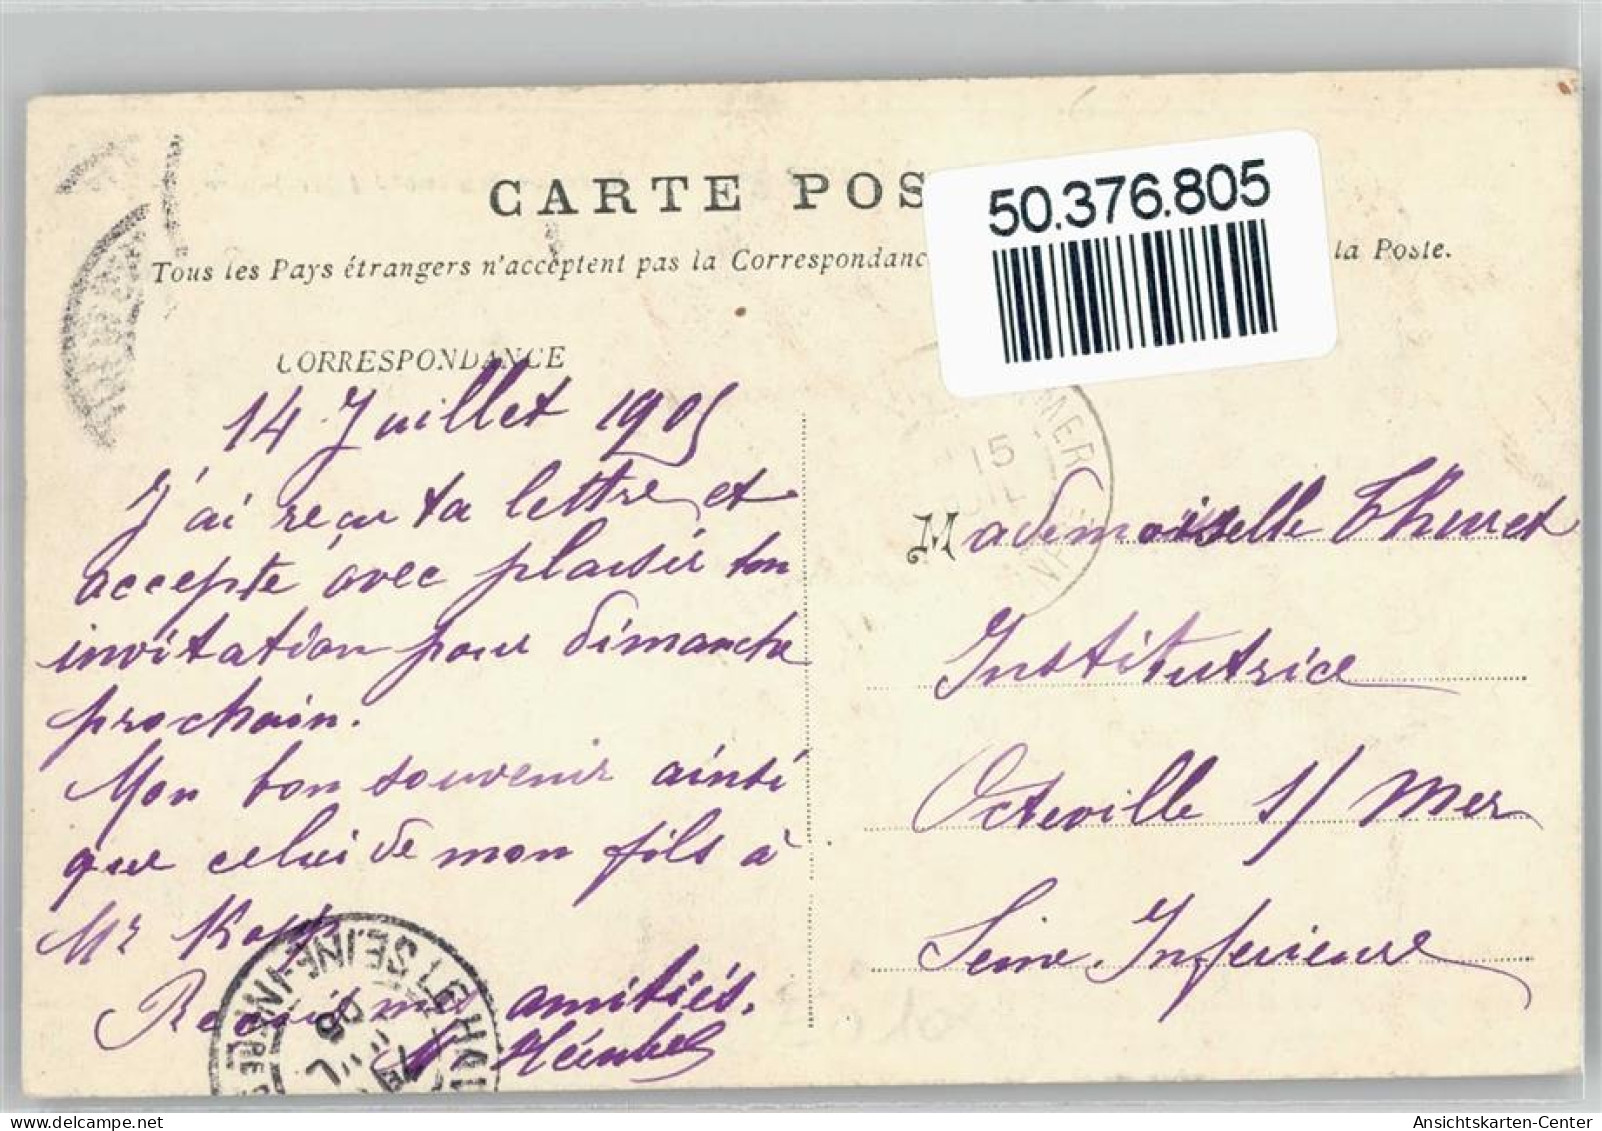 CARTE POS
50.376.805
Tous les Pays étrangers n'acceptent pas la Correspondanc la Poste.
CORRESPONDANCE
14 Juillet 1905
J'ai reçu ta lettre et
accepte avec plaisir ton
invitation pour dimanche
prochain.
Mon bon souvenir ainsi
que celui de mon fils à
Mr Kopp
Reçois mes amitiés.
MER
15
JUIL
Mademoiselle Thuret
Institutrice
Octeville s/ Mer
Seine Inferieure
LE HA
SEINE-INFRE
Ansichtskarten-Center